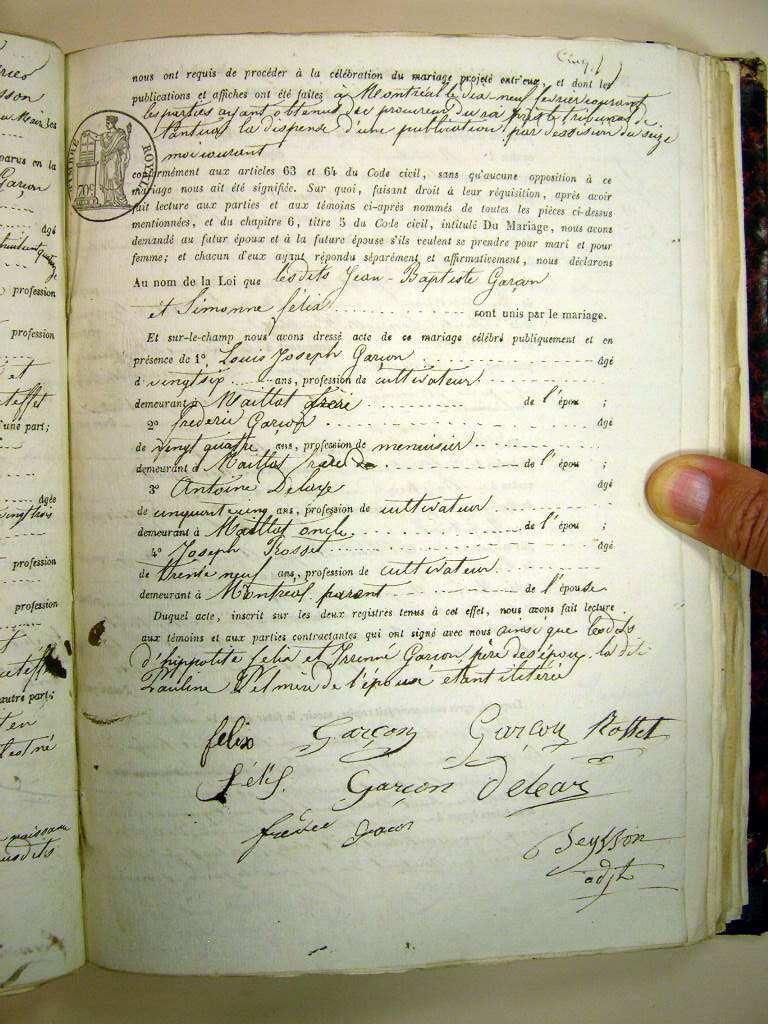 nous ont requis de procéder à la célébration du mariage projeté entr'eux, et dont les
publications et affiches ont été faites à Montréal le dix neuf fevrier courant
les parties ayant obtenus du procureur du roi près le tribunal de
nantua la dispense d'une publication par décision du seize
moi courant
conformément aux articles 63 et 64 du Code civil, sans qu'aucune opposition à ce
mariage nous ait été signifiée. Sur quoi, faisant droit à leur réquisition, après avoir
fait lecture aux parties et aux témoins ci-après nommés de toutes les pièces ci-dessus
mentionnées, et du chapitre 6, titre 5 du Code civil, intitulé Du Mariage, nous avons
demandé au futur époux et à la future épouse s'ils veulent se prendre pour mari et pour
femme; et chacun d'eux ayant répondu séparément et affirmativement, nous déclarons
Au nom de la Loi que lesdits Jean-Baptiste Garçon
et Simonne félix sont unis par le mariage.
Et sur-le-champ nous avons dressé acte de ce mariage célébré publiquement et en
présence de 1° Louis Joseph Garçon âgé
d vingt six ans, profession de cultivateur
demeurant à Maillat frère de l'épou ;
2° frederic Garçon âgé
de vingt quatre ans, profession de menuisier
demeurant à Maillat frère de l'épou ;
3° Antoine âgé
de cinquante cinq ans, profession de cultivateur
demeurant à Maillat oncle de l'épou ;
4° Joseph Rosset âgé
de trente neuf ans, profession de cultivateur
demeurant à Montreal parent de l'épouse
Duquel acte, inscrit sur les deux registres tenus à cet effet, nous avons fait lecture
aux témoins et aux parties contractantes qui ont signé avec nous ainsi que lesdits
d'hippolite felix et Garçon père des époux la dite
Pauline mère de l'épouse etant
felix Garçon Garçon Rosset
félix Garçon
Seysson
adjt
ROYAL
70c
profession
profession
et
une part;
Agée
profession
profession
autre part;